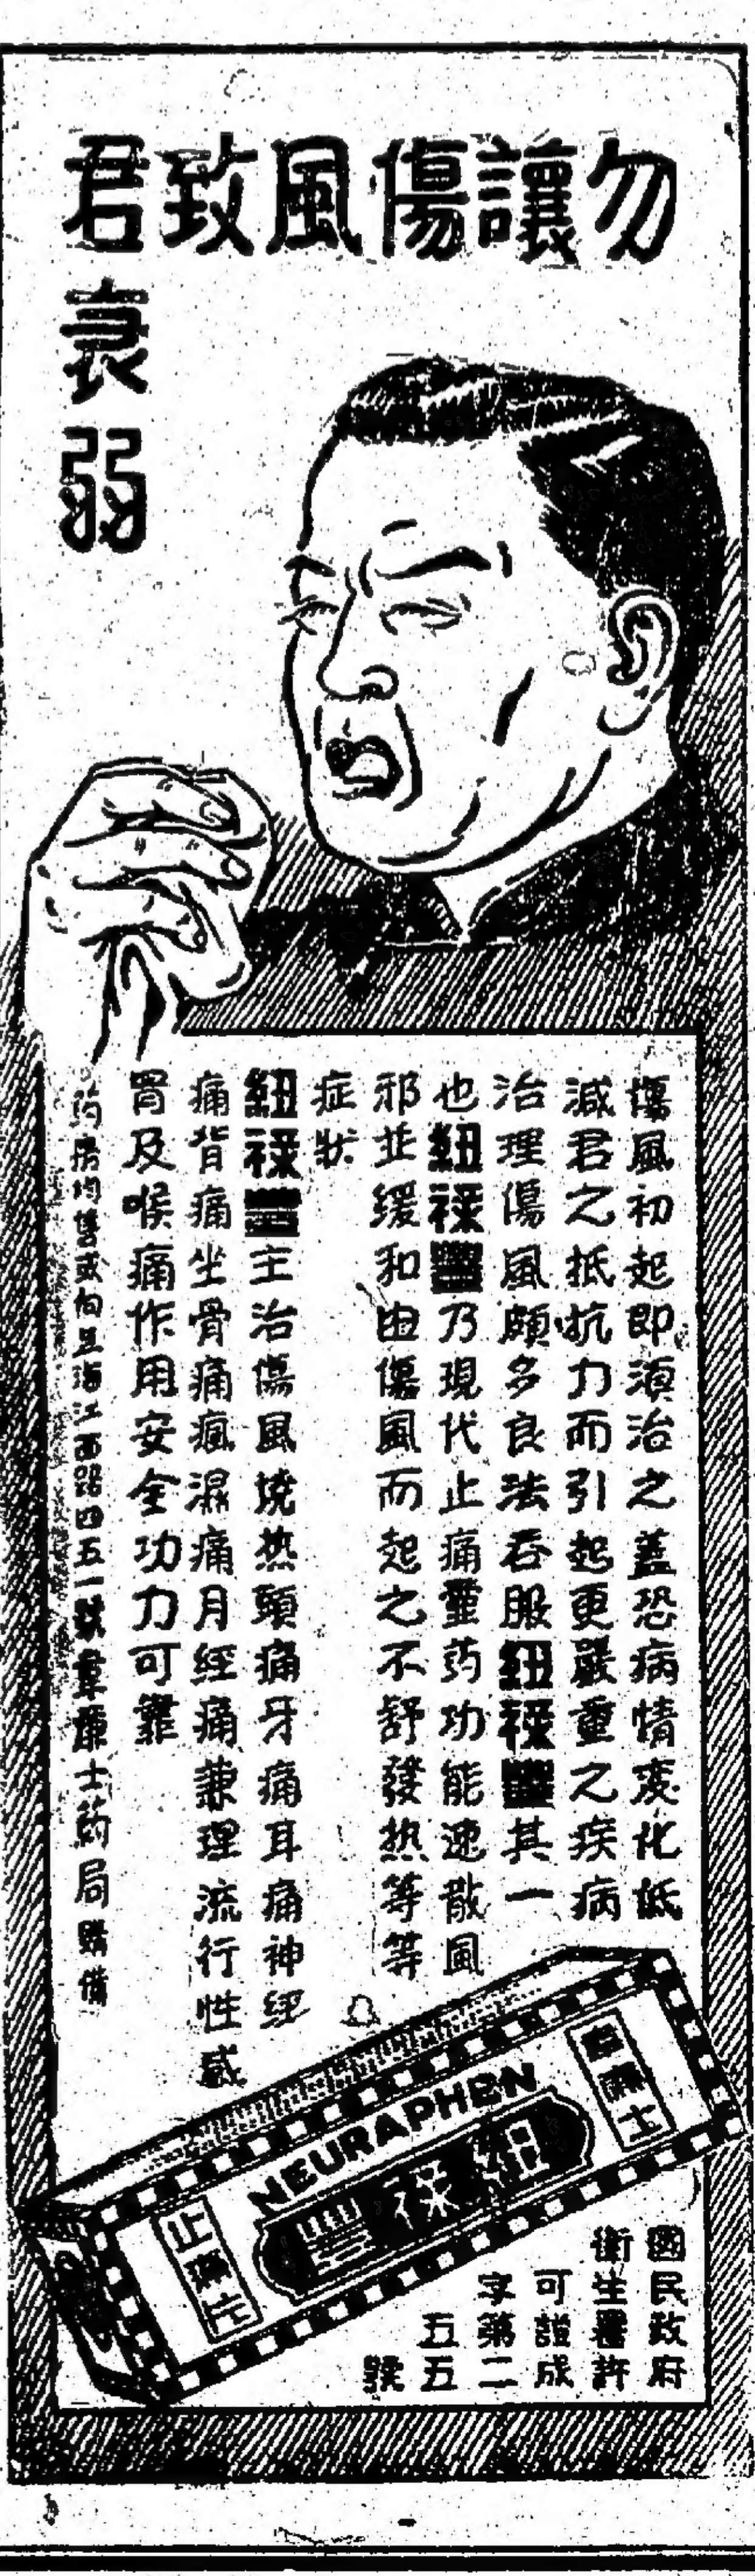 勿讓傷風致君
衰弱
傷風初起即須治之蓋恐病情變化低
減君之抵抗力而引起更嚴重之疾病
治理傷風頗多良法吞服紐祿豐其一
也紐祿豐乃現代止痛靈药功能速散風
邪並緩和由傷風而起之不舒發热等等
症狀
紐祿豐主治傷風燒热頭痛牙痛耳痛神經
痛背痛坐骨痛瘋濕痛月經痛兼理流行性感
冒及喉痛作用安全功力可靠
药房均售或向上海江西路四五一號韋廉士药局購備
韋廉士
NEURAPHEN
紐祿豐
止痛片
國民政府
衛生署許
可證成
字第二
五五
號